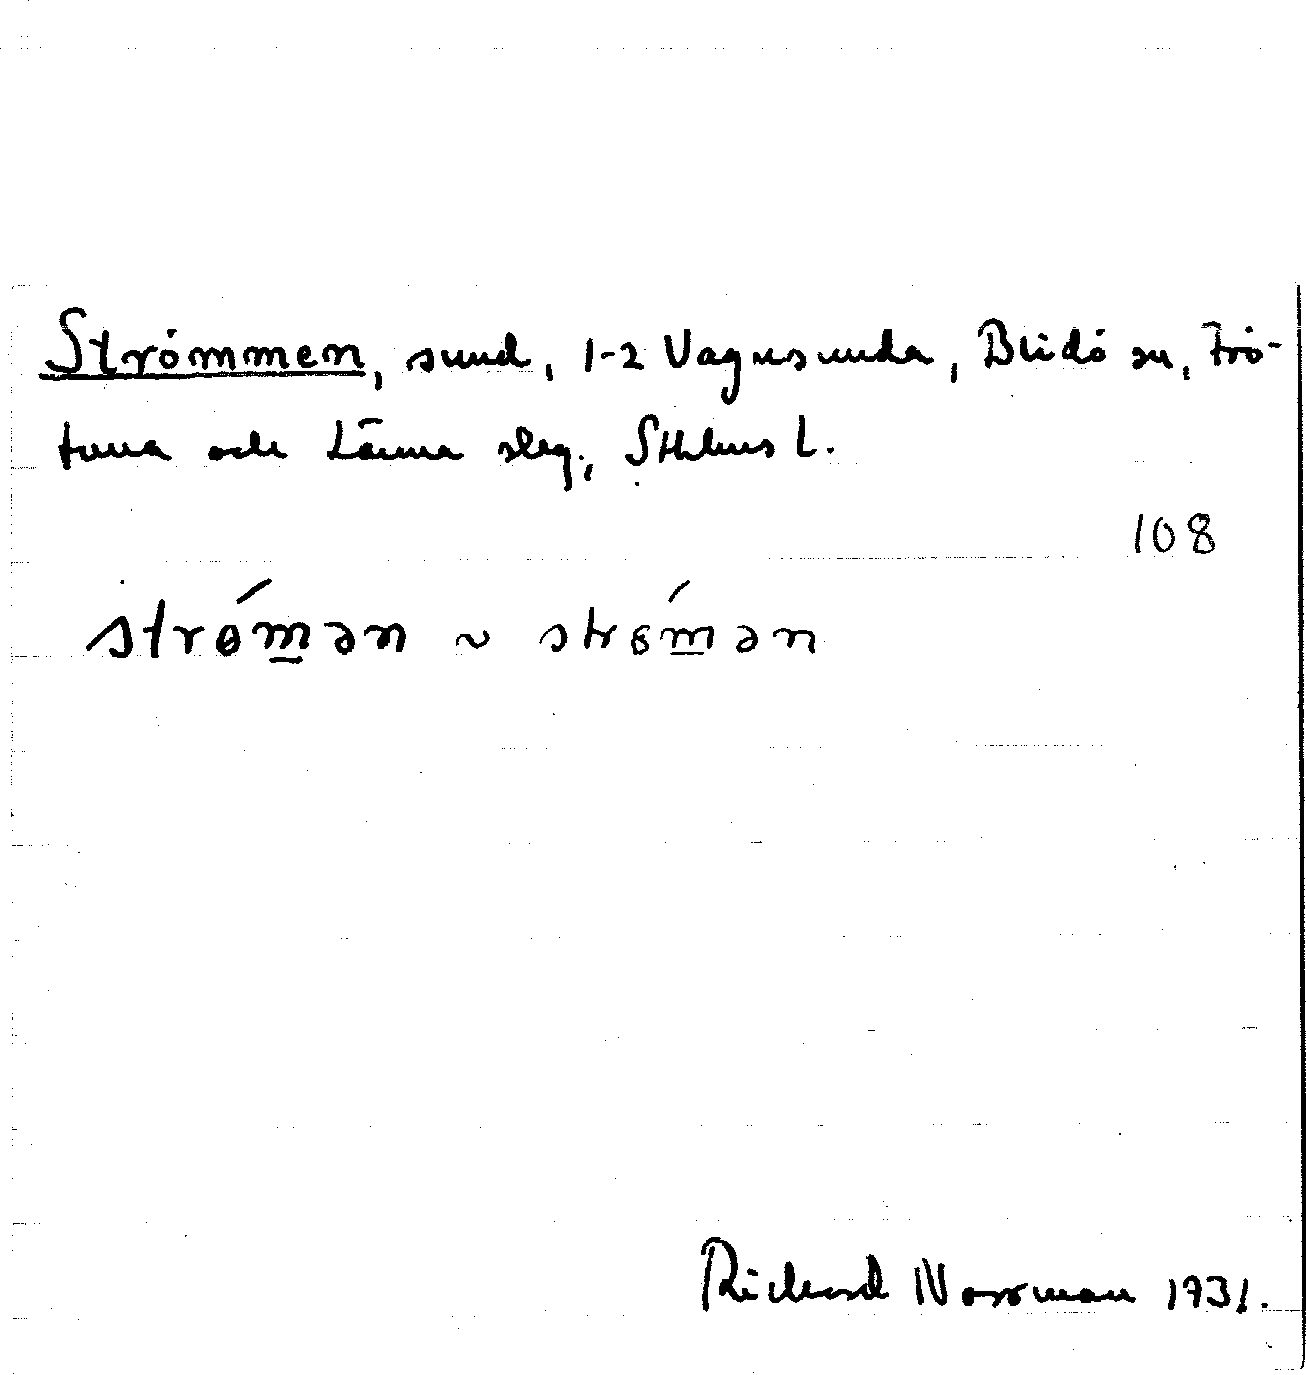 Strömmen, sund, 1-2 Vagnsunda, Blidö sn, Frö-
tuna och Länna slg., Sthlms l.
108
strɵ́m̲ən ~ strɵ́m̲ən
Richard Norrman 1931.